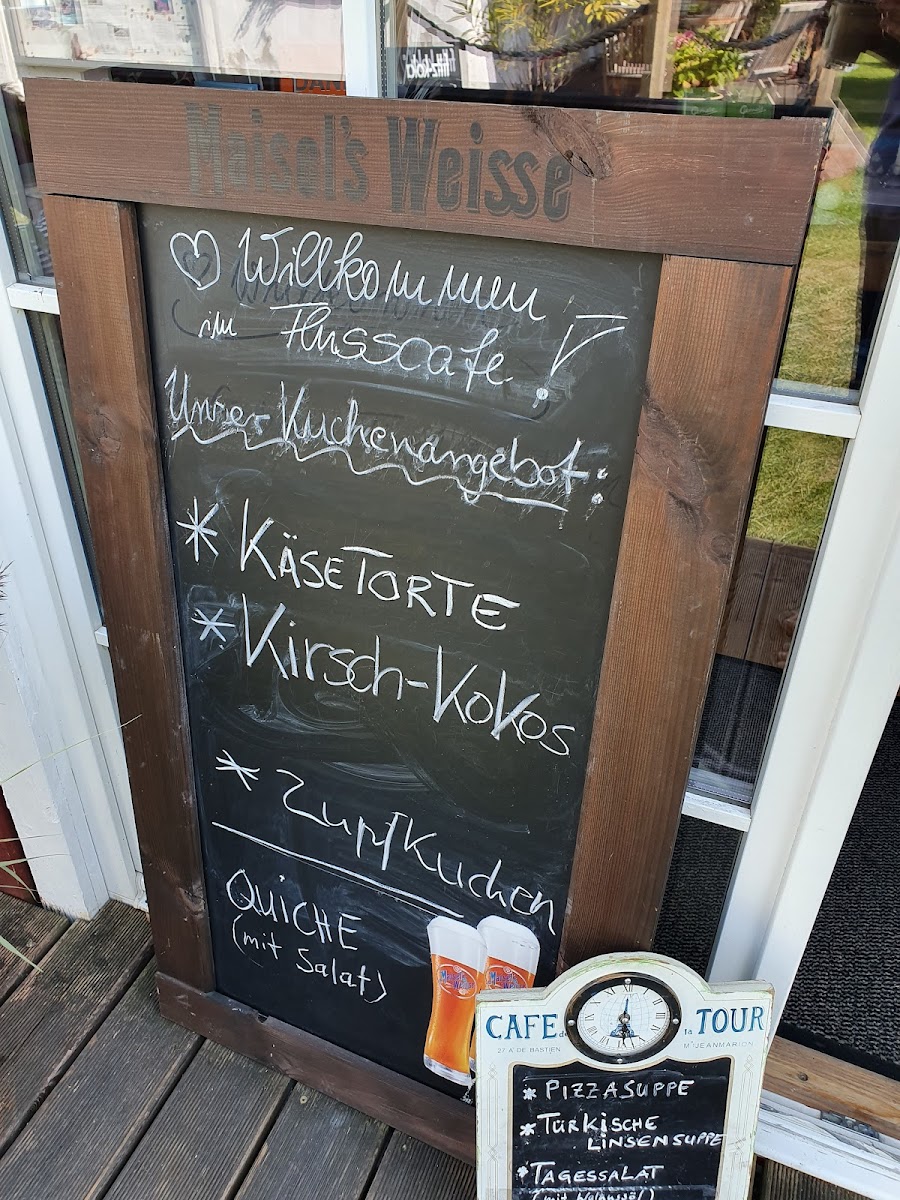 fritz-kola
Maisel's Weisse
Willkommen
im Flusscafe!
Unser Kuchenangebot:
* KÄSETORTE
* Kirsch-Kokos
* Zupfkuchen
QUICHE
(mit Salat)
Maisel's Weisse
Maisel's Weisse
CAFE de la TOUR
27 A DE BASTIEN
M JEANMARION
* PIZZASUPPE
* TÜRKISCHE
LINSENSUPPE
* TAGESSALAT